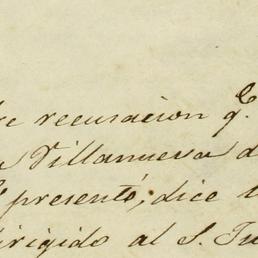 re recusacion q.e
a Villanueva d
presentó, dice
irigido al S. Ju